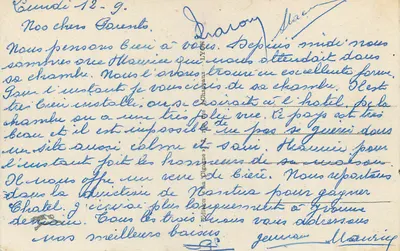 Lundi 12-9.
Nos chers Parents.
Nous pensons bien à vous. Depuis midi nous
sommes avec Maurice qui nous attendait dans
sa chambre. Nous l'avons trouvé en excellente forme.
Pour l'instant je vous écris de sa chambre. Il est
très bien installé, on se croirait à l'hôtel. De la
chambre on a une très jolie vue. Le pays est très
beau et il est impossible de ne pas se guérir dans
un site aussi calme et sain. Maurice pour
l'instant fait les honneurs de sa maison.
Il nous offre un verre de bière. Nous repartons
dans la direction de Nantua pour gagner
Chatel. J'écrirai plus longuement à
demain. Tous les trois nous vous adressons
nos meilleurs baisers
Maurice